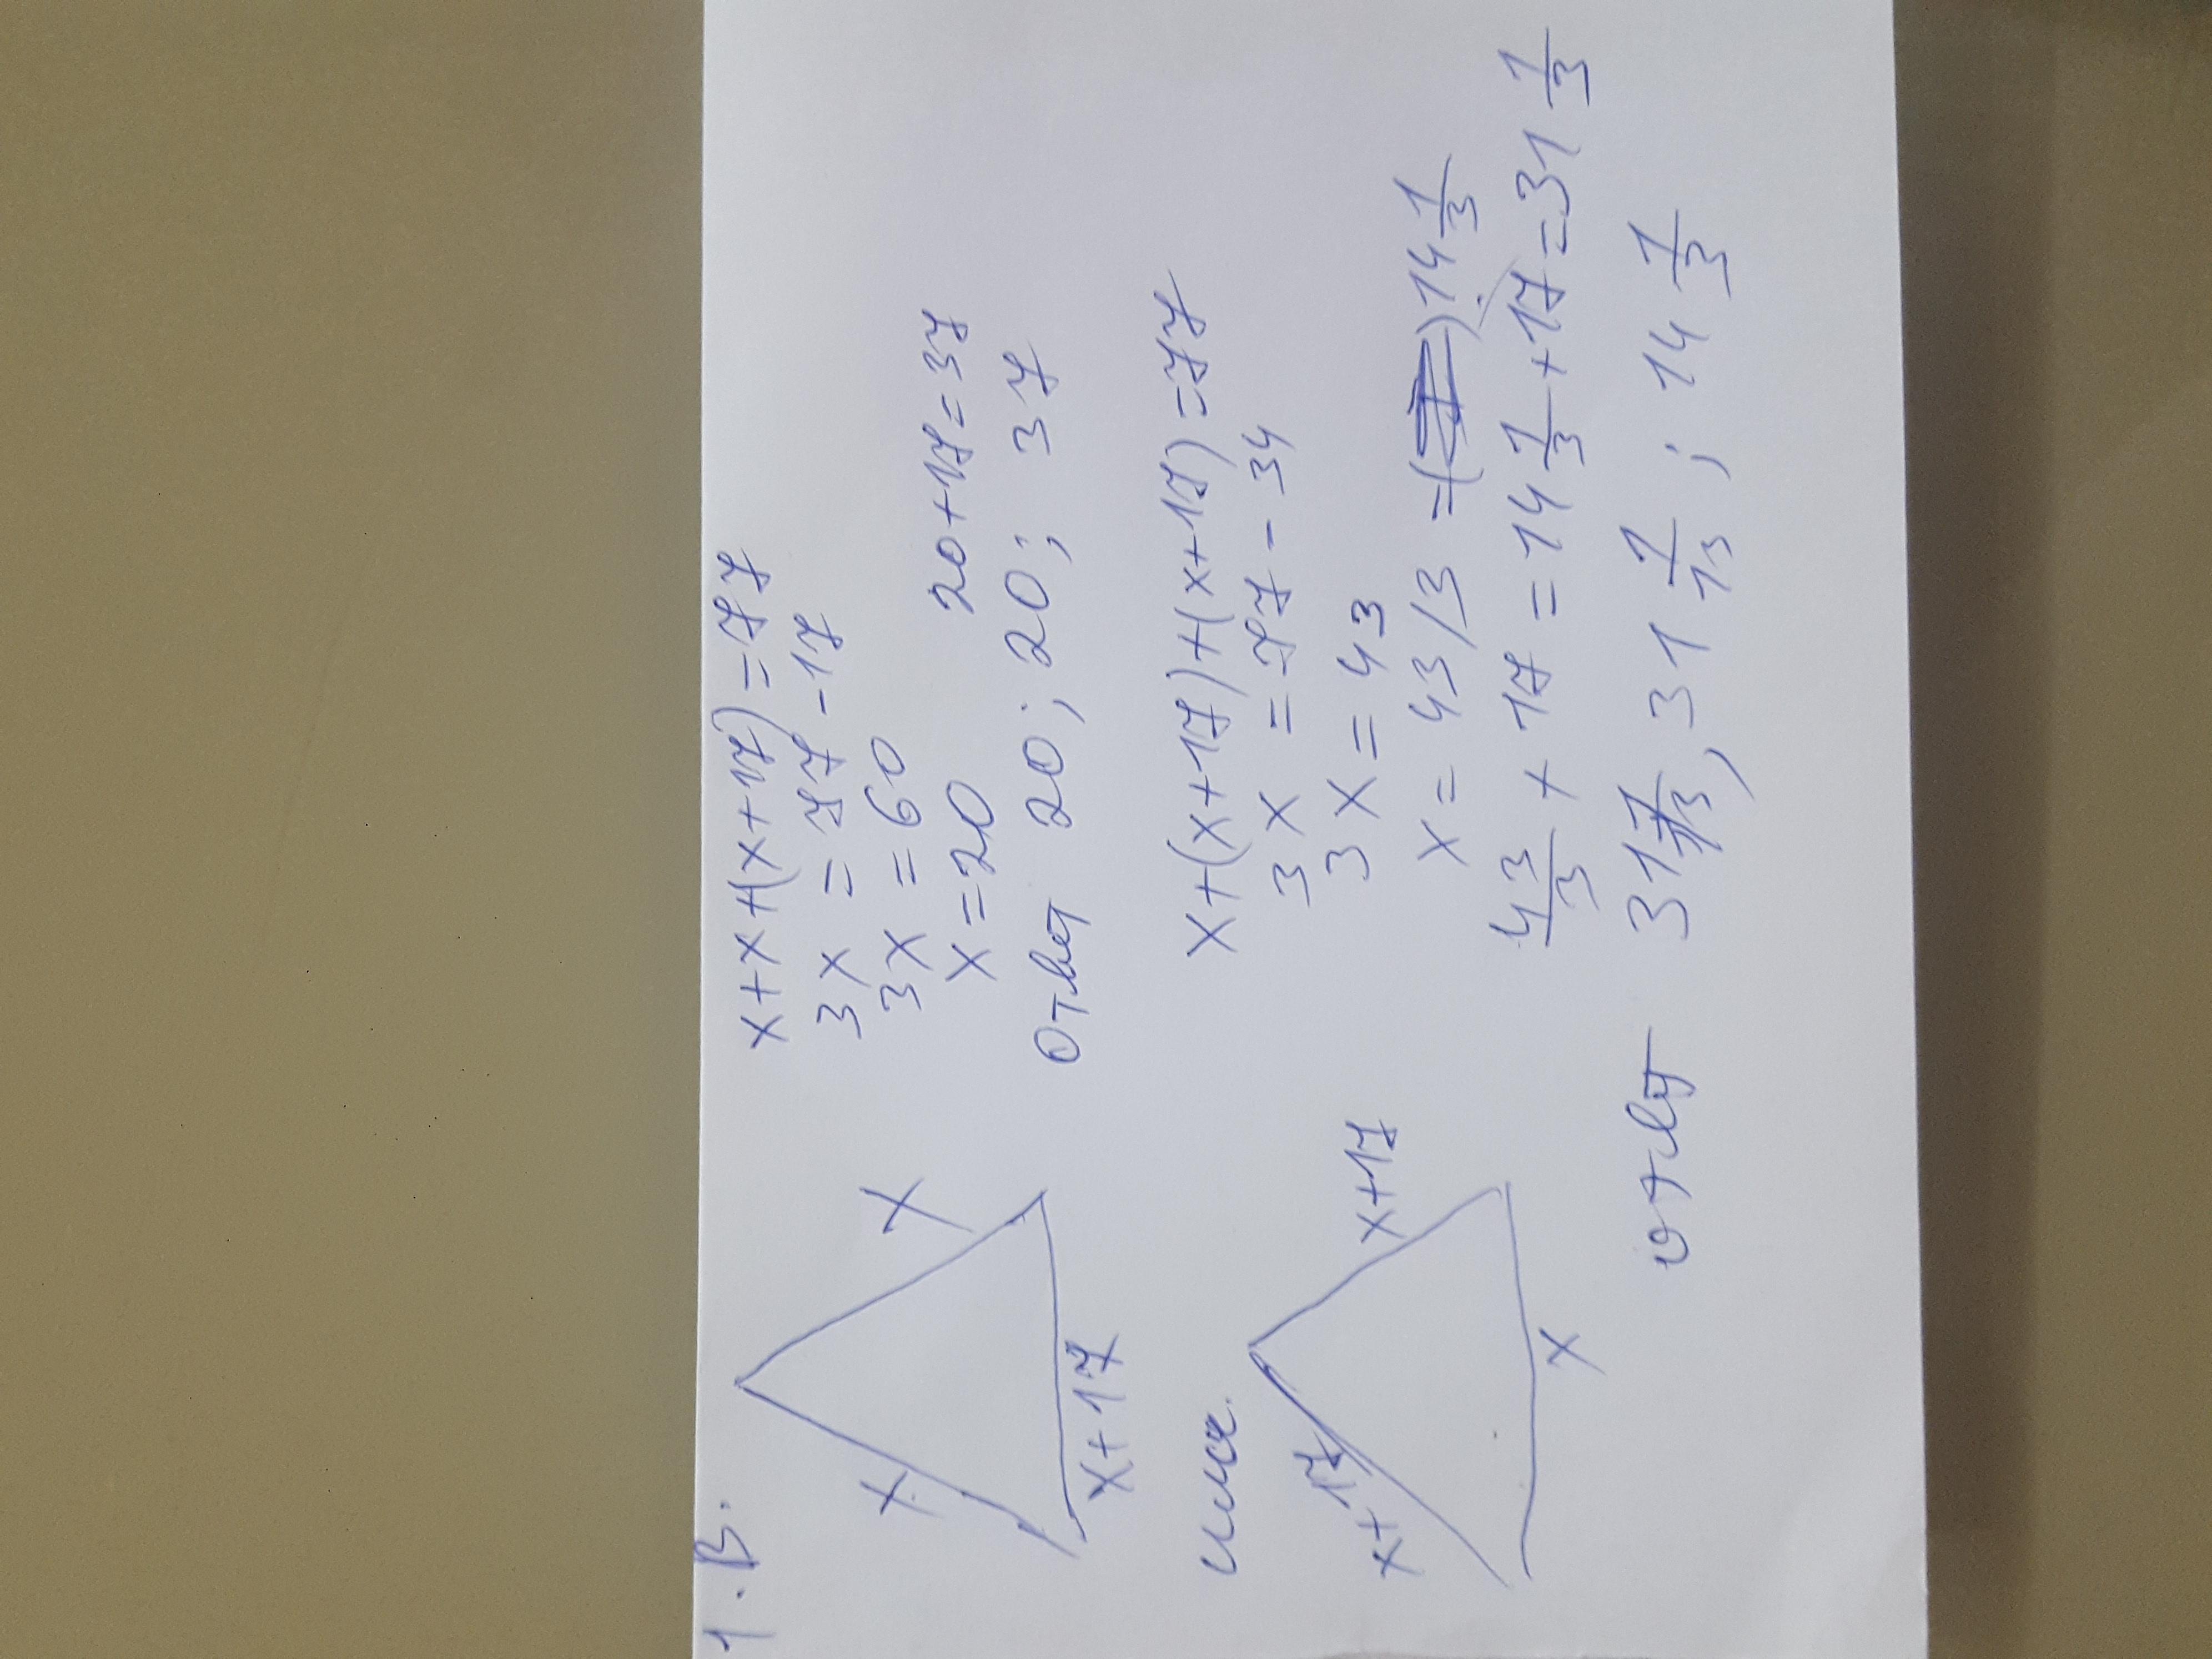 1.В.
x+x+(x+17)=77
3x=77-17
3x=60
x=20 20+17=37
Ответ 20; 20; 37
x
x
x+17
x+(x+17)+(x+17)=77
3x=77-34
3x=43
x=43/3=( )14 1/3
43/3+17=14 1/3+17=31 1/3
x+17
x+17
x
ответ 31 1/3, 31 1/13; 14 1/3